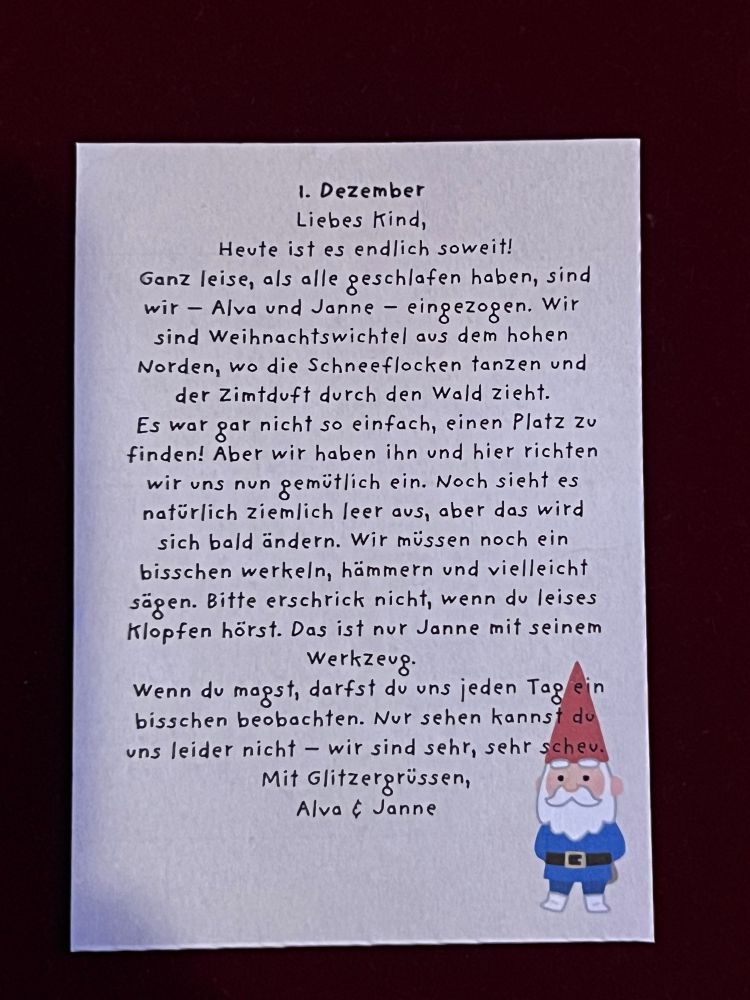 1. Dezember
Liebes Kind,
Heute ist es endlich soweit!
Ganz leise, als alle geschlafen haben, sind
wir – Alva und Janne – eingezogen. Wir
sind Weihnachtswichtel aus dem hohen
Norden, wo die Schneeflocken tanzen und
der Zimtduft durch den Wald zieht.
Es war gar nicht so einfach, einen Platz zu
finden! Aber wir haben ihn und hier richten
wir uns nun gemütlich ein. Noch sieht es
natürlich ziemlich leer aus, aber das wird
sich bald ändern. Wir müssen noch ein
bisschen werkeln, hämmern und vielleicht
sägen. Bitte erschrick nicht, wenn du leises
Klopfen hörst. Das ist nur Janne mit seinem
Werkzeug.
Wenn du magst, darfst du uns jeden Tag ein
bisschen beobachten. Nur sehen kannst du
uns leider nicht – wir sind sehr, sehr scheu.
Mit Glitzergrüssen,
Alva & Janne